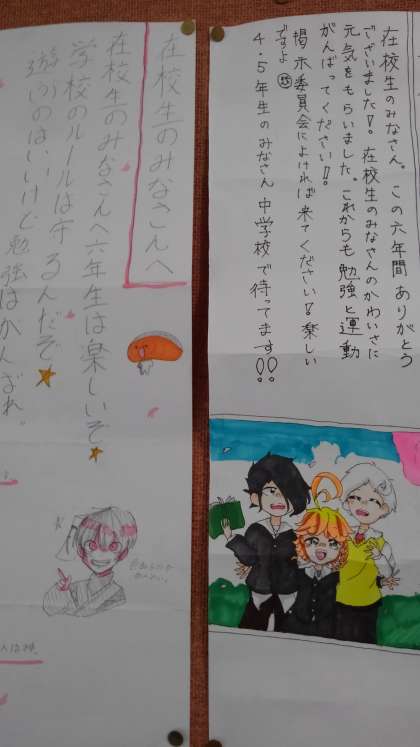 在校生のみなさん。この六年間ありがとう
ございました!。在校生のみなさんのかわいさに
元気をもらいました。これからも勉強と運動
がんばってください!!
掲示委員会によければ来てください!楽しい
ですよ
4.5年生のみなさん中学校で待ってます!!
在校生のみなさんへ
在校生のみなさんへ六年生は楽しいぞ
学校のルールは守るんだぞ
遊ぶのはいいけど勉強はがんばれ。